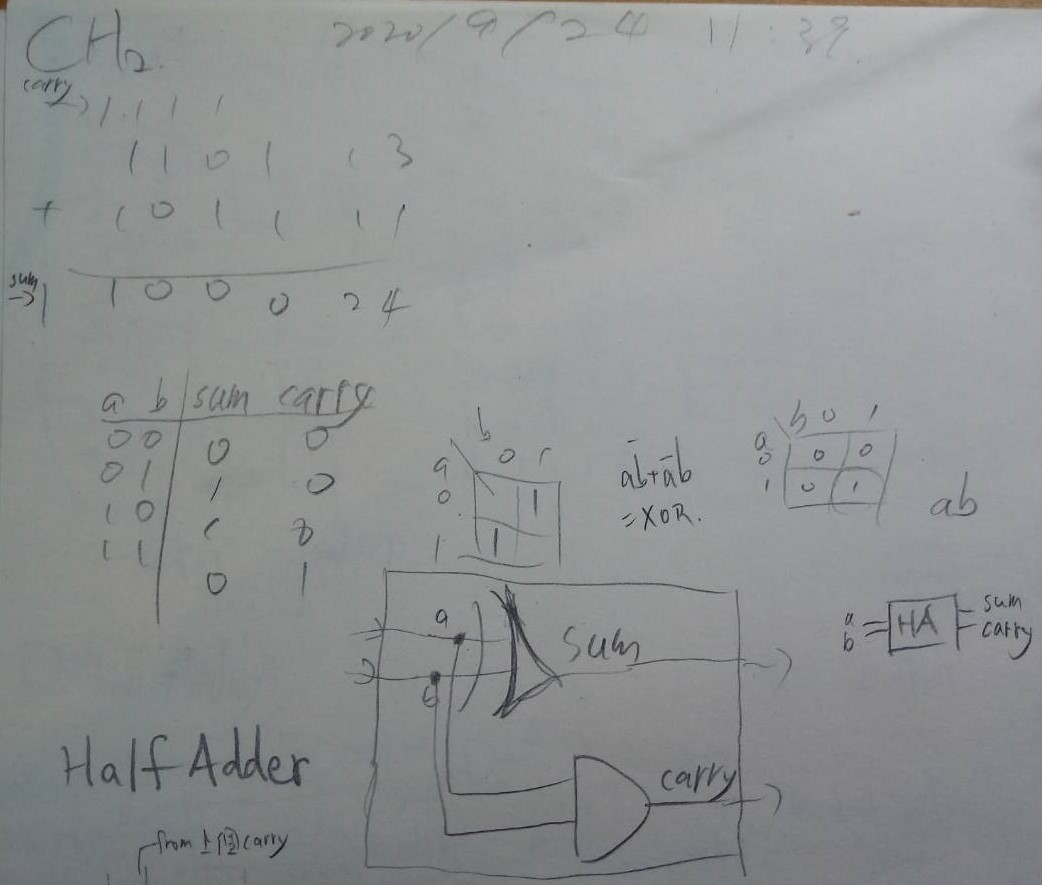 CH2. 2020/9/24 11:39
carry
→ 1 1 1 1
1 1 0 1 13
+ 1 0 1 1 11
sum
→ 1 1 0 0 0 24
a b sum carry
0 0 0 0
0 1 1 0
1 0 1 0
1 1 0 1
b
a 0 1
0 1
1 1
āb+ab̄
=XOR.
b 0 1
a
0 0 0
1 0 1
ab
a
b
sum
carry
a
b
HA
sum
carry
Half Adder
from 上個carry